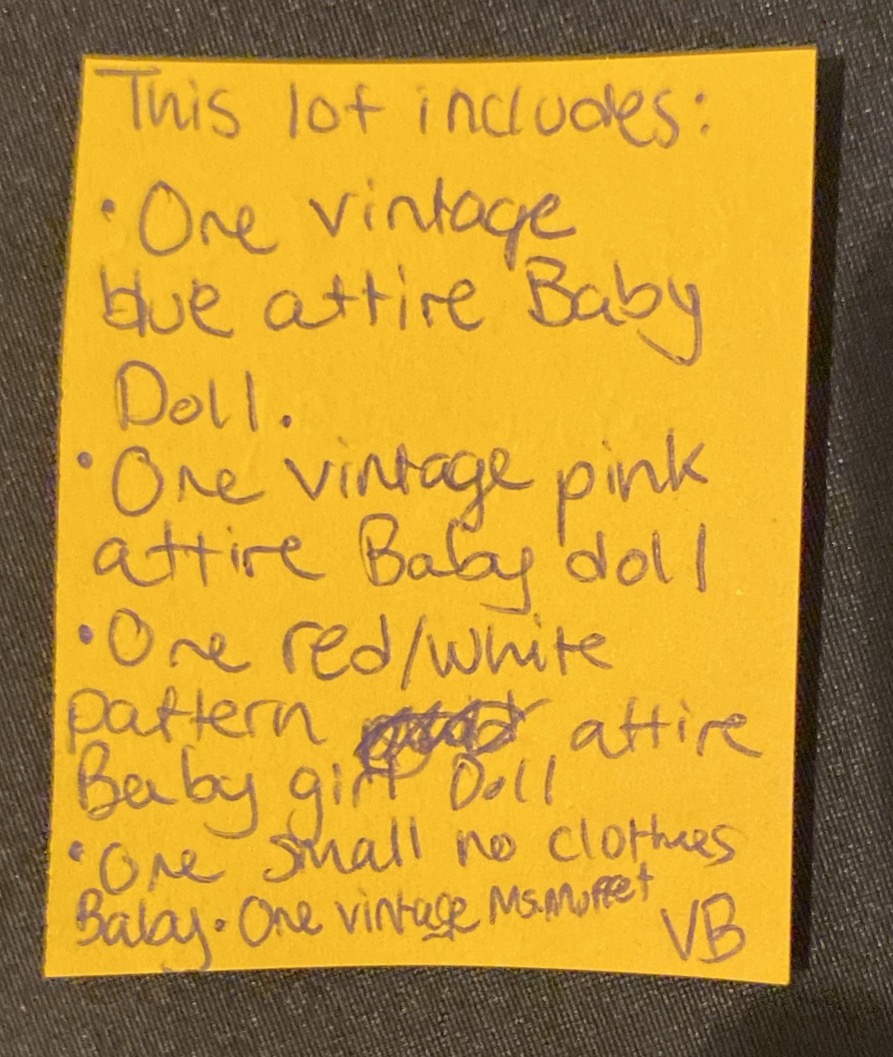 This lot includes:
• One vintage
blue attire Baby
Doll.
• One vintage pink
attire Baby doll
• One red/white
pattern attire
Baby girl Doll
• One small no clothes
Baby. One vintage Ms. Muffet
VB